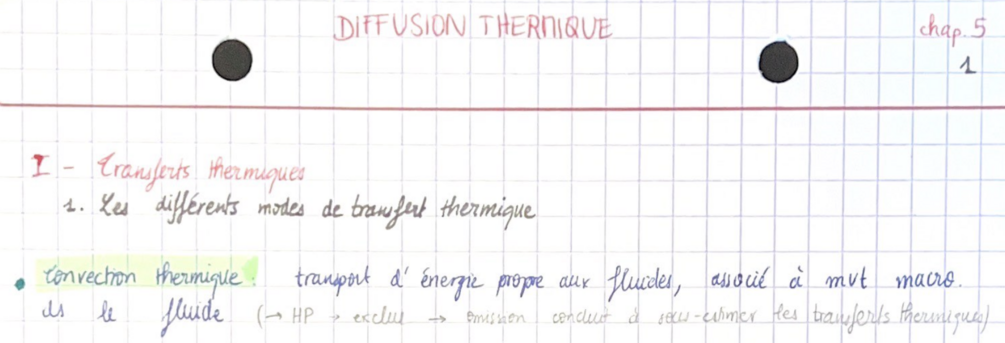 DIFFUSION THERMIQUE
chap. 5
1
I - Transferts thermiques
1. Les différents modes de transfert thermique
• Convection thermique : transport d'énergie propre aux fluides, associé à mvt macro.
ds le fluide (→ HP → exclus → omission conduit à sous-estimer les transferts thermiques)